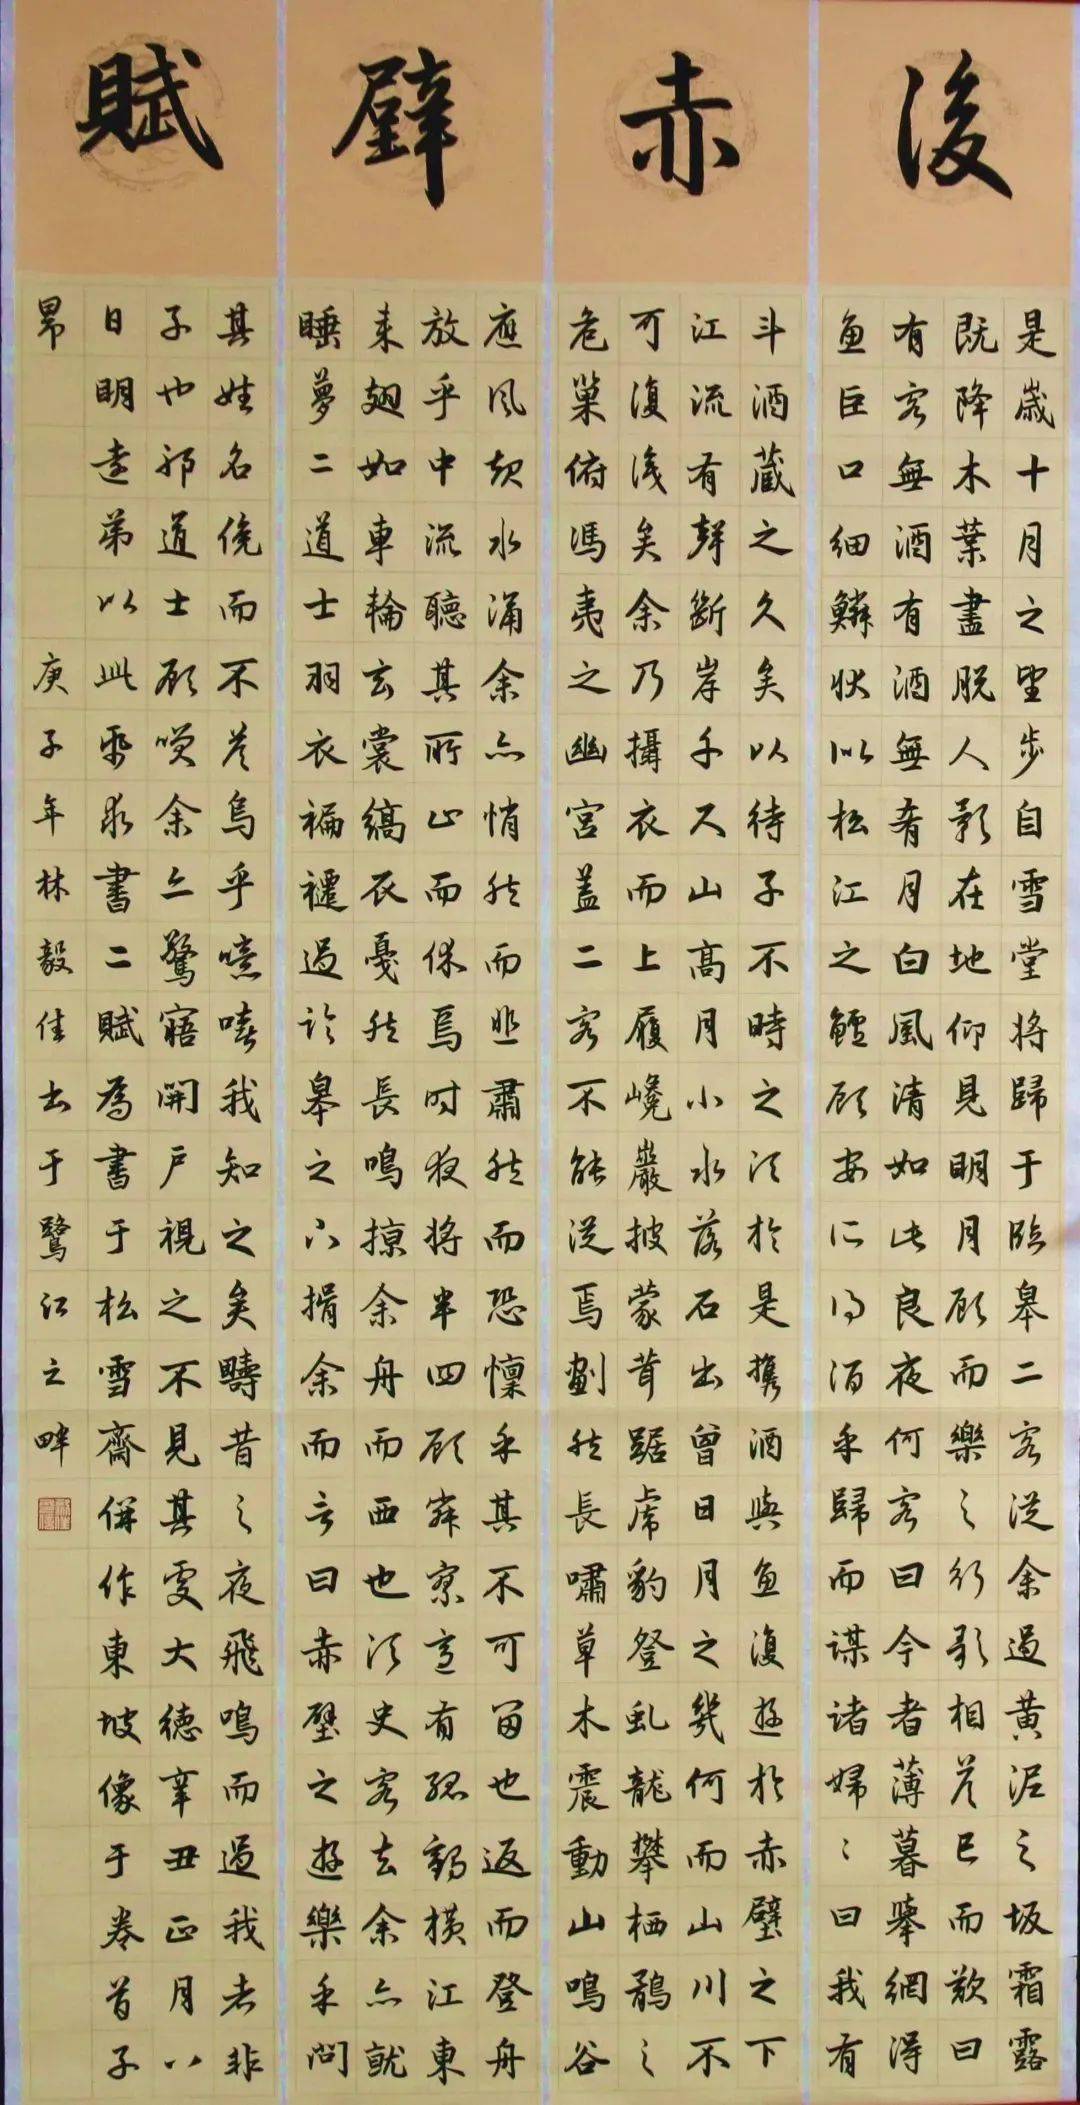 後赤壁賦
是歲十月之望步自雪堂將歸于臨皋二客從余過黃泥之坂霜露
既降木葉盡脫人影在地仰見明月顧而樂之行歌相答已而歎曰
有客無酒有酒無肴月白風清如此良夜何客曰今者薄暮舉網得
魚巨口細鱗狀似松江之鱸顧安所得酒乎歸而謀諸婦〻曰我有
斗酒藏之久矣以待子不時之須於是攜酒與魚復遊於赤壁之下
江流有聲斷岸千尺山高月小水落石出曾日月之幾何而山川不
可復識矣余乃攝衣而上履巉巖披蒙茸踞虎豹登虬龍攀栖鶻之
危巢俯馮夷之幽宮蓋二客不能從焉劃然長嘯草木震動山鳴谷
應風起水涌余亦悄然而悲肅然而恐懍乎其不可留也返而登舟
放乎中流聽其所止而休焉時夜將半四顧寂寥適有孤鶴橫江東
來翅如車輪玄裳縞衣戛然長鳴掠余舟而西也須臾客去余亦就
睡夢二道士羽衣褊褼過臨皋之下揖余而言曰赤壁之遊樂乎問
其姓名俛而不答烏乎噫嘻我知之矣疇昔之夜飛鳴而過我者非
子也邪道士顧笑余亦驚寤開戶視之不見其處大德辛丑正月八
日明遠弟以此紙求書二賦為書于松雪齋併作東坡像于卷首子
昂
庚子年林毅佳書于鷺江之畔